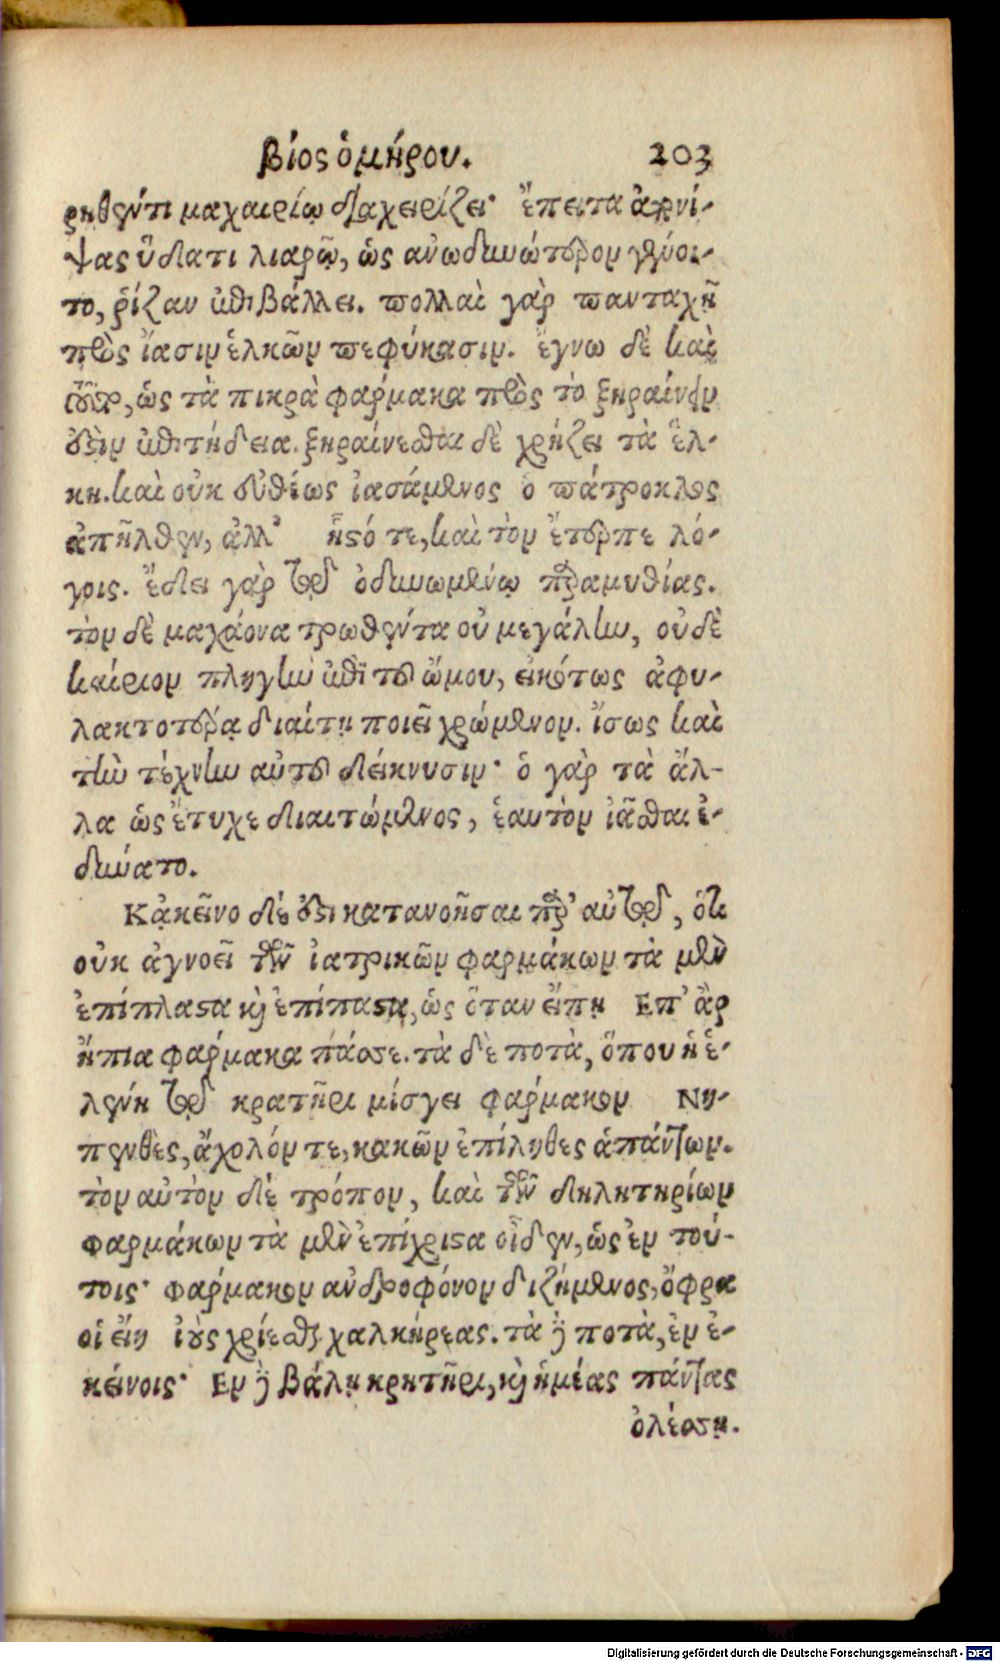 βίος ὁμήρου. 203
ρηθέντι μαχαιρίῳ διαχειρίζει· ἔπειτα ἀπονί-
ψας ὕδατι λιαρῷ, ὡς ἀνωδυνώτερον γένοι-
το, ῥίζαν ἐπιβάλλει. πολλαὶ γὰρ πανταχῆ
πρὸς ἴασιν ἑλκῶν πεφύκασιν. ἔγνω δὲ καὶ
ὡς τὰ πικρὰ φαρμακα πρὸς τὸ ξηραίνειν
ὅτιν ἐπιτήδεια. ξηραίνεσθαι δὲ χρήζει τὰ ἕλ-
κη. καὶ οὐκ εὐθέως ἰασάμενος ὁ πάτροκλος
ἀπῆλθεν, ἀλλ' ἧςό τε, καὶ τὸν ἔτερπε λό-
γοις. ἔδει γὰρ τῷ ὀδυνωμένῳ παραμυθίας.
τὸν δὲ μαχάονα τρωθέντα οὐ μεγάλην, οὐδὲ
καίριον πληγὴν ἐπὶ τοῦ ὤμου, εἰκότως ἀφυ-
λακτοτέρᾳ διαίτῃ ποιεῖ χρώμενον. ἴσως καὶ
τὴν τέχνην αὐτοῦ δείκνυσιν· ὁ γὰρ τὰ ἄλ-
λα ὡς ἔτυχε διαιτώμενος, ἑαυτὸν ἰᾶσθαι ἐ-
δυνάτο.
Κἀκεῖνο δέ ἐστι κατανοῆσαι παρ' αὐτῷ, ὅτι
οὐκ ἀγνοεῖ τῶν ἰατρικῶν φαρμάκων τὰ μὲν
ἐπίπλαστα καὶ ἐπίπαστα, ὡς ὅταν εἴπῃ Επ' ἂρ
ἤπια φάρμακα πάσσε. τὰ δὲ ποτὰ, ὅπου ἡ ἑ-
λένη τῷ κρατῆρι μίσγει φάρμακον Νη-
πενθὲς, ἄχολόν τε, κακῶν ἐπίληθες ἁπάντων.
τὸν αὐτὸν δὲ τρόπον, καὶ τῶν δηλητηρίων
φαρμάκων τὰ μὲν ἐπίχριστα οἶδεν, ὡς ἐν τού-
τοις· φάρμακον ἀνδροφόνον διζήμενος, ὄφρα
οἱ εἴη ἰοὺς χρίεσθαι χαλκήρεας. τὰ δὲ ποτὰ, ἐν ἐ-
κείνοις· Εν δὲ βάλῃ κρητῆρι, καὶ ἡμέας πάντας
ὀλέσσῃ.
Digitalisierung gefördert durch die Deutsche Forschungsgemeinschaft - DFG